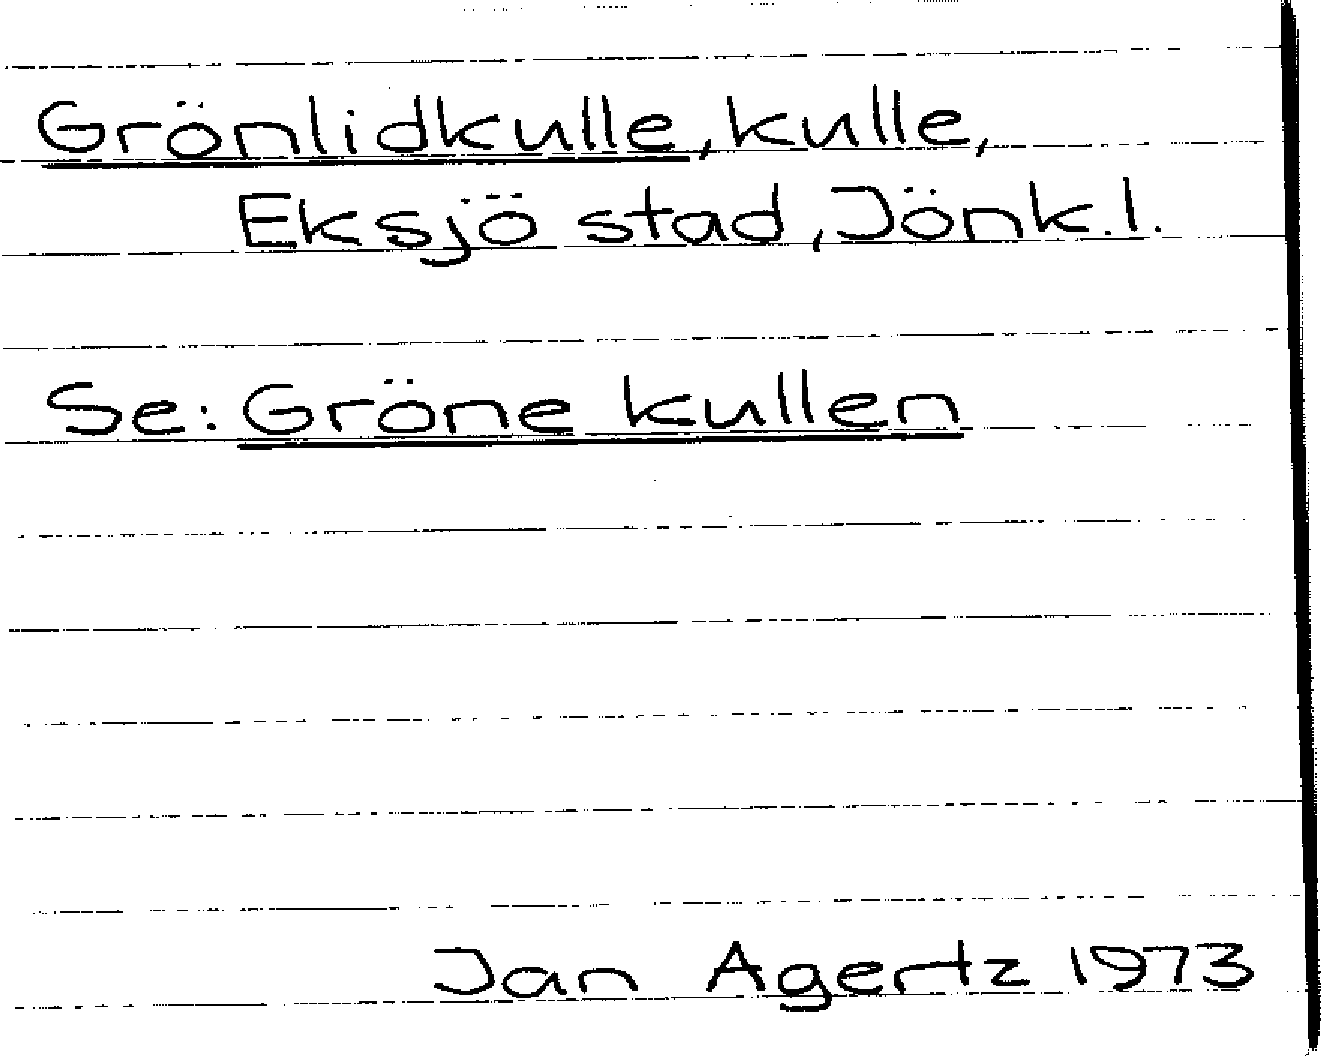 Grönlidkulle, kulle,
Eksjö stad, Jönk.l.
Se: Gröne kullen
Jan Agertz 1973